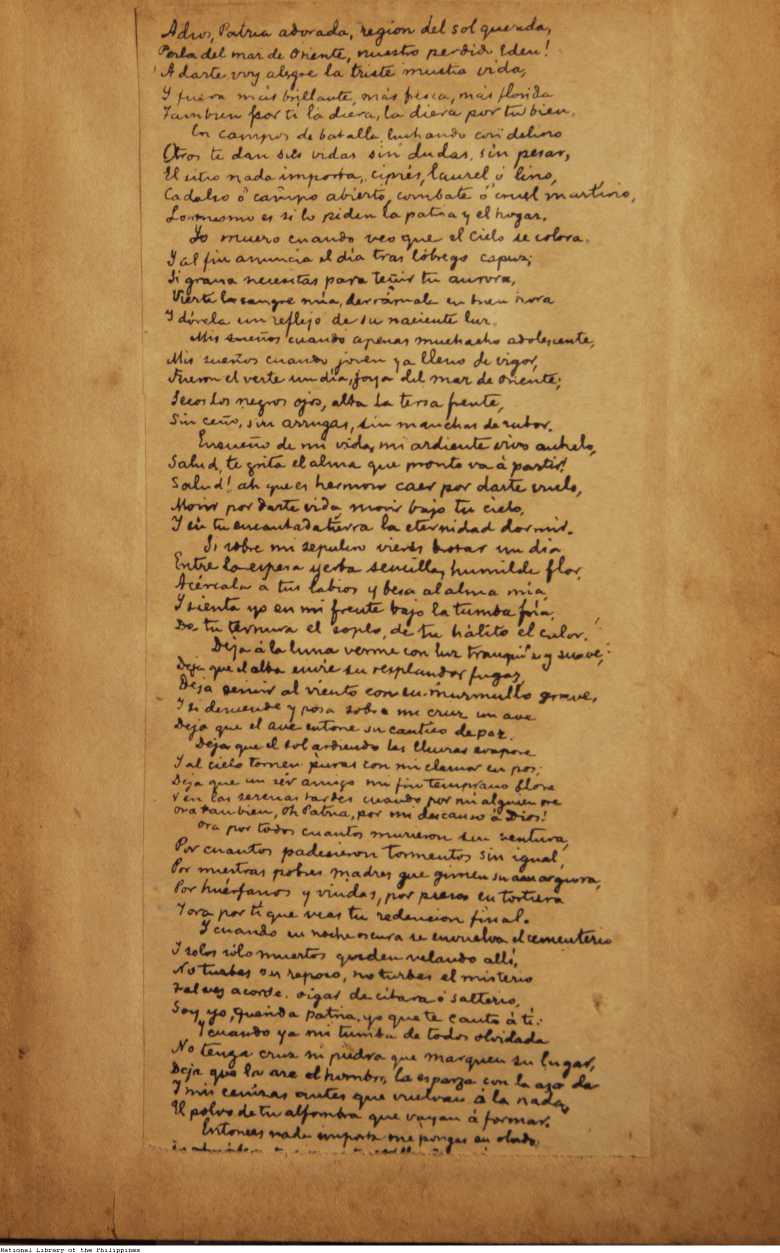 Adios, Patria adorada, region del sol querida,
Perla del mar de Oriente, nuestro perdido Eden!
A darte voy alegre la triste mustia vida,
Y fuera más brillante, más fresca, más florida
Tambien por ti la diera, la diera por tu bien.
En campos de batalla, luchando con delirio
Otros te dan sus vidas sin dudas, sin pesar,
El sitio nada importa, ciprés, laurel ó lirio,
Cadalso ó campo abierto, combate ó cruel martirio,
Lo mismo es si lo piden la patria y el hogar.
Yo muero cuando veo que el cielo se colora.
Y al fin anuncia el día tras lóbrego capuz;
Si grana necesitas para teñir tu aurora,
Vierte la sangre mía, derrámala en buen hora
Y dórela un reflejo de su naciente luz.
Mis sueños cuando apenas muchacho adolescente,
Mis sueños cuando joven ya lleno de vigor,
Fueron el verte un día, joya del mar de oriente;
Secos los negros ojos, alta la tersa frente,
Sin ceño, sin arrugas, sin manchas de rubor.
Ensueño de mi vida, mi ardiente vivo anhelo,
Salud, te grita el alma que pronto va á partir!
Salud! ah que es hermoso caer por darte vuelo,
Morir por darte vida, morir bajo tu cielo,
Y en tu encantada tierra la eternidad dormir.
Si sobre mi sepulcro vieres brotar un dia
Entre la espesa yerba sencilla, humilde flor,
Acércala a tus labios y besa al alma mía,
Y sienta yo en mi frente bajo la tumba fría,
De tu ternura el soplo, de tu hálito el calor.
Deja á la luna verme con luz tranquila y suave;
Deja que el alba envíe su resplandor fugaz,
Deja gemir al viento con su murmullo grave,
Y si desciende y posa sobre mi cruz un ave
Deja que el ave entone su cantico de paz.
Deja que el sol ardiendo las lluvias evapore
Y al cielo tornen puras con mi clamor en pos;
Deja que un sér amigo mi fin temprano llore
Y en las serenas tardes cuando por mi alguien ore
Ora tambien, Oh Patria, por mi descanso á Dios!
Ora por todos cuantos murieron sin ventura,
Por cuantos padecieron tormentos sin igual,
Por nuestras pobres madres que gimen su amargura,
Por huérfanos y viudas, por presos en tortura
Y ora por tí que veas tu redencion final.
Y cuando en noche oscura se envuelva el cementerio
Y solos sólo muertos queden velando allí,
No turbes su reposo, no turbes el misterio
Tal vez acorde oigas de citara ó salterio,
Soy yo, querida patria, yo que te canto á ti.
Y cuando ya mi tumba de todos olvidada
No tenga cruz ni piedra que marquen su lugar,
Deja que la are el hombre, la esparza con la azada
Y mis cenizas antes que vuelvan á la nada,
El polvo de tu alfombra que vayan á formar.
Entonces nada importa me pongas en olvido,
National Library of the Philippines